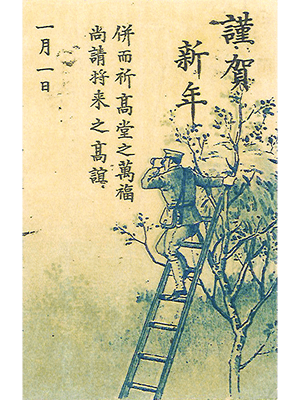 謹賀
新年
併而祈高堂之萬福
尚請将来之高誼
一月一日